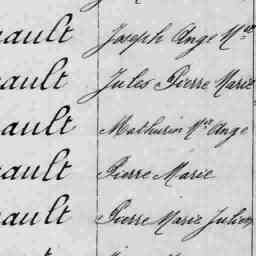 ault Joseph Ange Mie
ault Jules Pierre Marie
ault Mathurin Mie Ange
ault Pierre Marie
ault Pierre Marie Julien